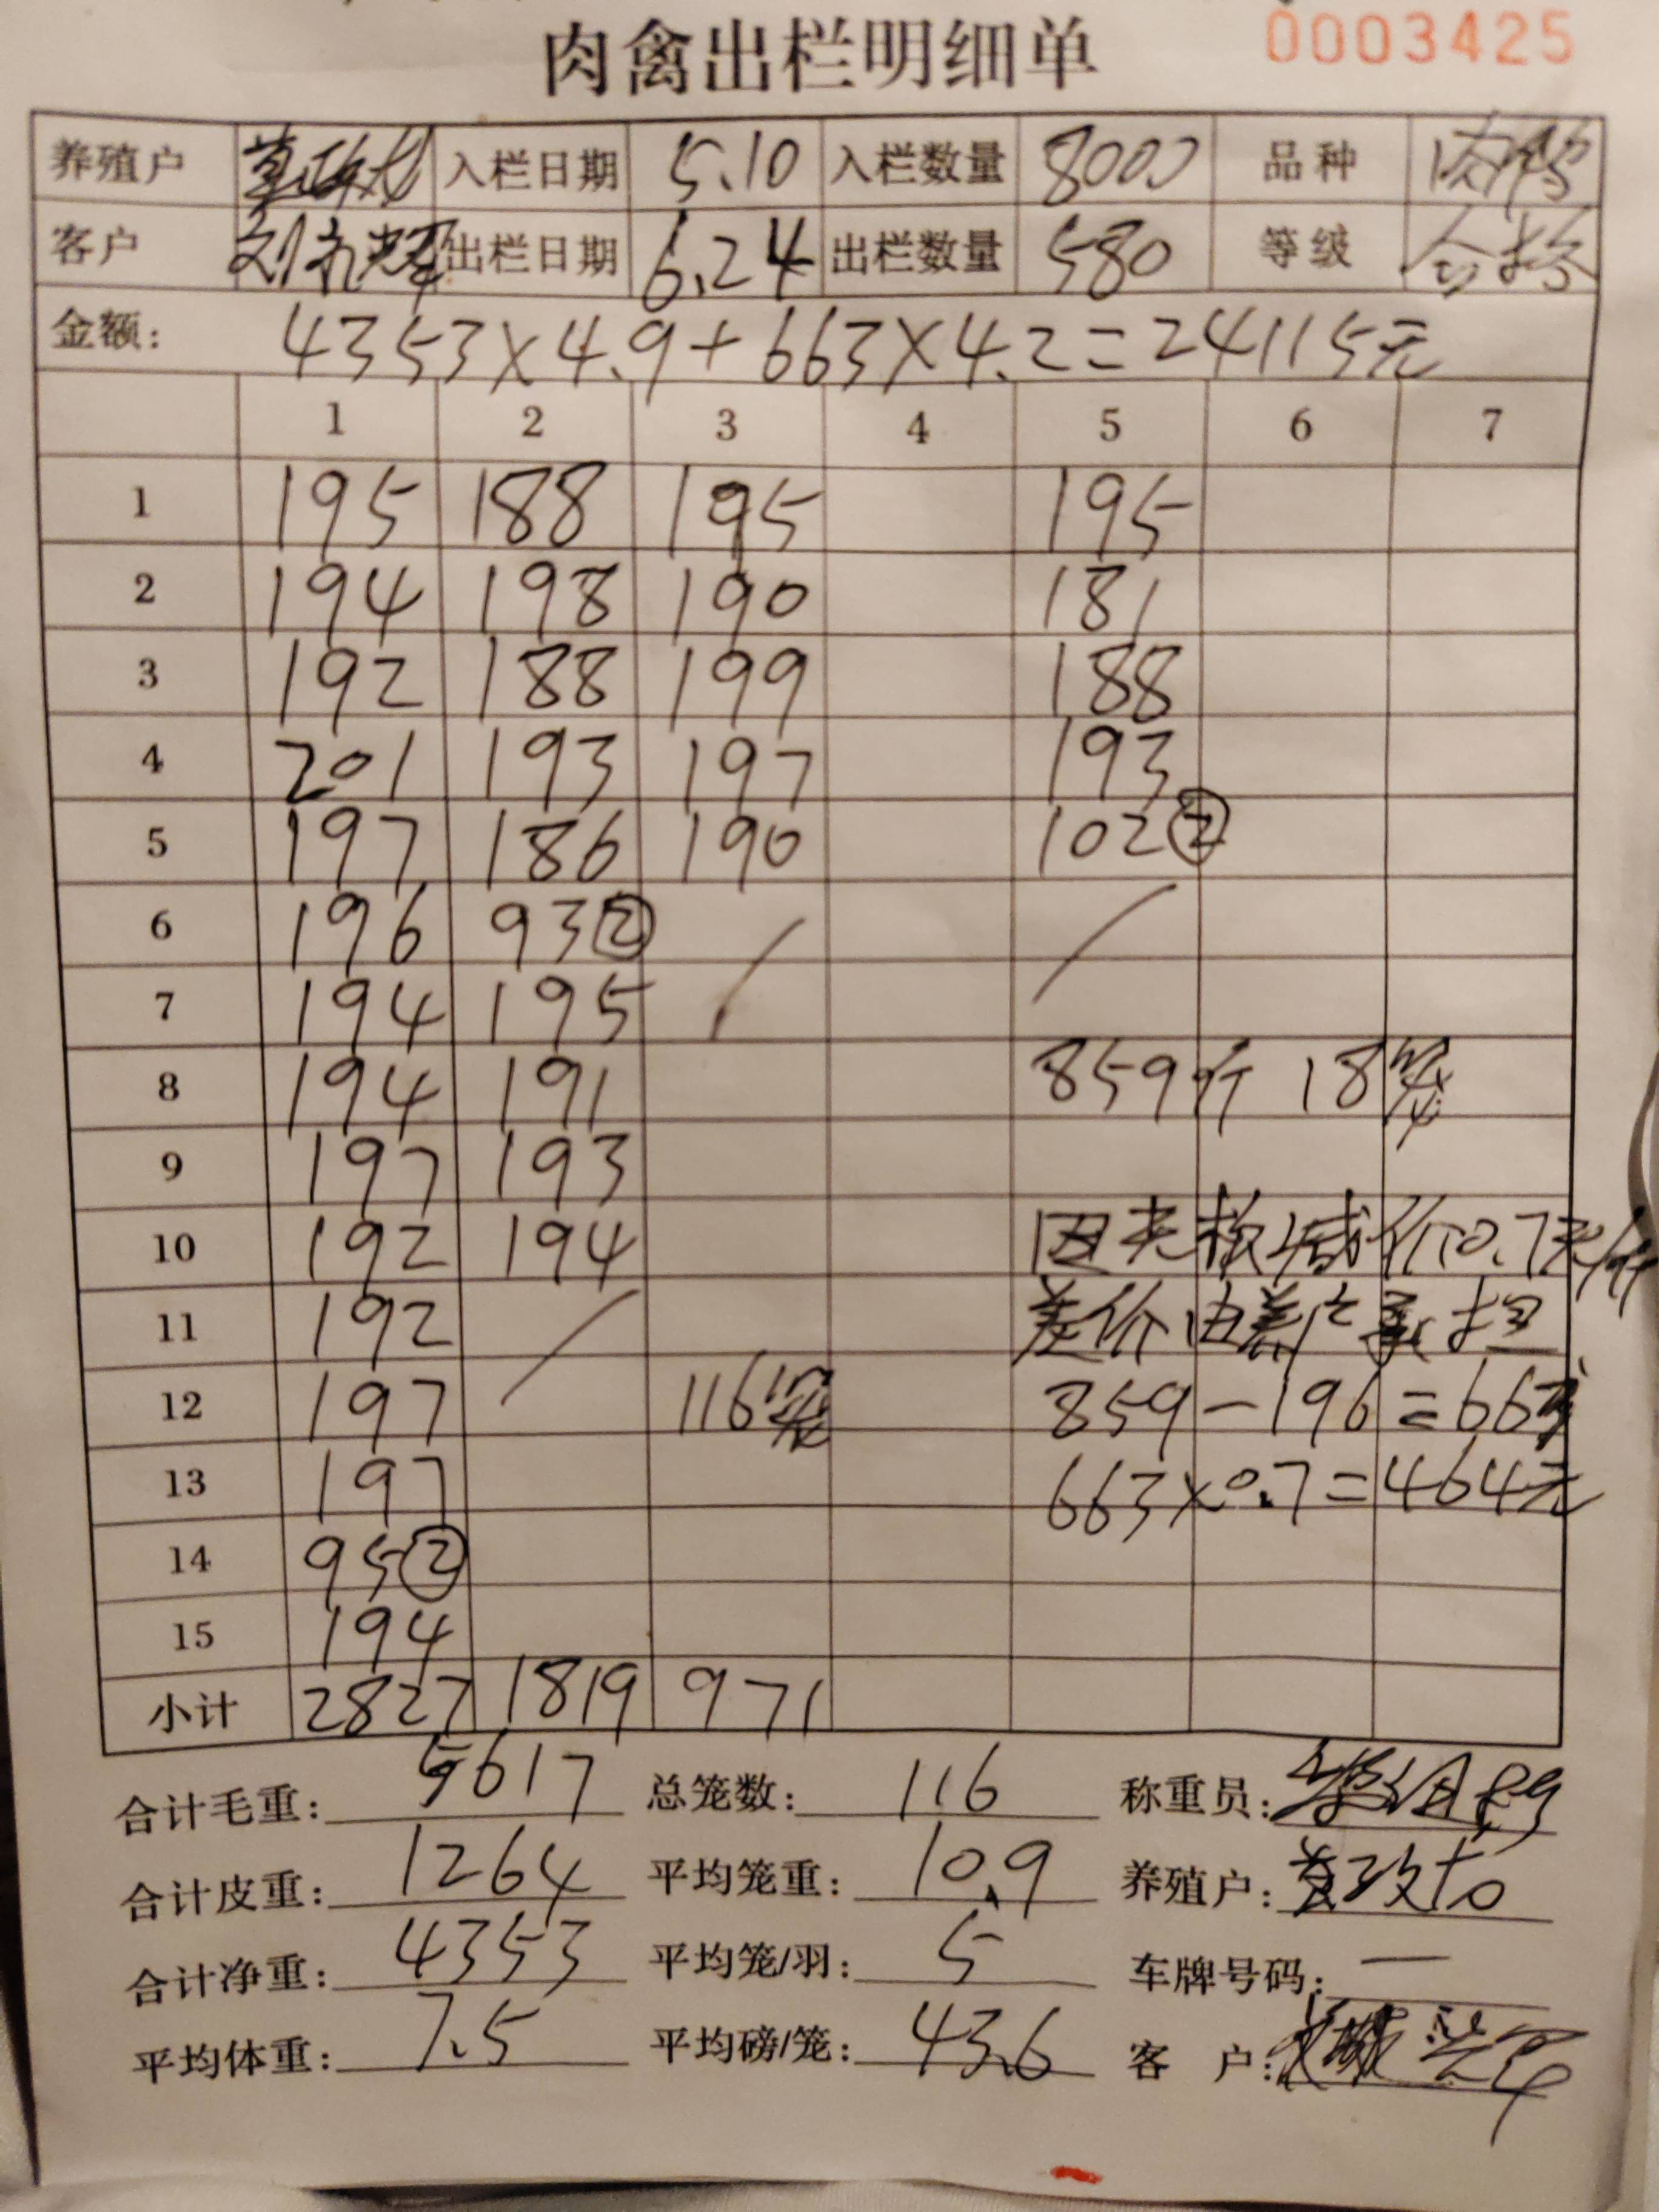 肉禽出栏明细单 0003425
养殖户 入栏日期 5.10 入栏数量 8000 品种 肉鸭
客户 出栏日期 6.24 出栏数量 580 等级 合格
金额: 4353×4.9+663×4.2=24115元
1 2 3 4 5 6 7
1 195 188 195 195
2 194 198 190 181
3 192 188 199 188
4 201 193 197 193
5 197 186 190 102②
6 196 93②
7 194 195
8 194 191 859斤 18笼
9 197 193
10 192 194 减价0.7元/斤
11 192 差价由养户承担
12 197 116笼 859-196=663
13 197 663×0.7=464元
14 95②
15 194
小计 2827 1819 971
合计毛重: 5617 总笼数: 116 称重员:
合计皮重: 1264 平均笼重: 10.9 养殖户:
合计净重: 4353 平均笼/羽: 5 车牌号码: —
平均体重: 7.5 平均磅/笼: 43.6 客户: